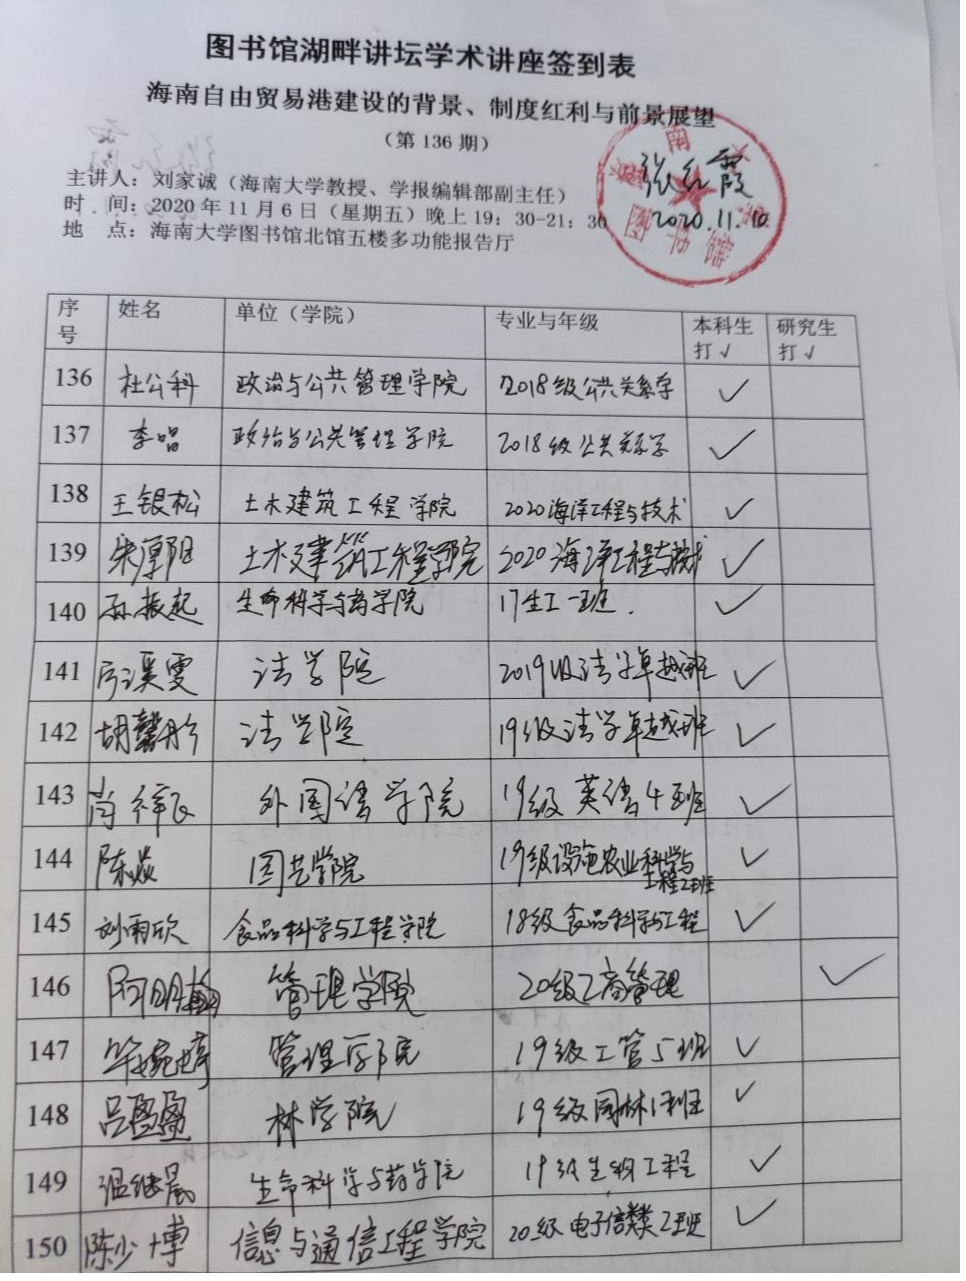 图书馆湖畔讲坛学术讲座签到表
海南自由贸易港建设的背景、制度红利与前景展望
（第 136 期）
主讲人：刘家诚（海南大学教授、学报编辑部副主任）
时 间：2020 年 11 月 6 日（星期五）晚上 19：30-21：30
地 点：海南大学图书馆北馆五楼多功能报告厅
张红霞
2020.11.10
图书馆
序号 姓名 单位（学院） 专业与年级 本科生打√ 研究生打√
136 杜公科 政治与公共管理学院 2018级公共关系学 √
137 李唱 政治与公共管理学院 2018级公共关系学 √
138 王银松 土木建筑工程学院 2020海洋工程与技术 √
139 朱厚阳 土木建筑工程学院 2020海洋工程与技术 √
140 孙振起 生命科学与药学院 17生工一班. √
141 溪雯 法学院 2019级法学卓越班 √
142 胡馨 法学院 19级法学卓越班 √
143 肖梓 外国语学院 19级英语4班 √
144 陈焱 园艺学院 19级设施农业科学与工程2班 √
145 刘雨欣 食品科学与工程学院 18级食品科学与工程 √
146 阿明翰 管理学院 20级工商管理 √
147 婉婷 管理学院 19级工管5班 √
148 吕盈盈 林学院 19级园林1班 √
149 温继晨 生命科学与药学院 19级生物工程 √
150 陈少博 信息与通信工程学院 20级电子信息类2班 √